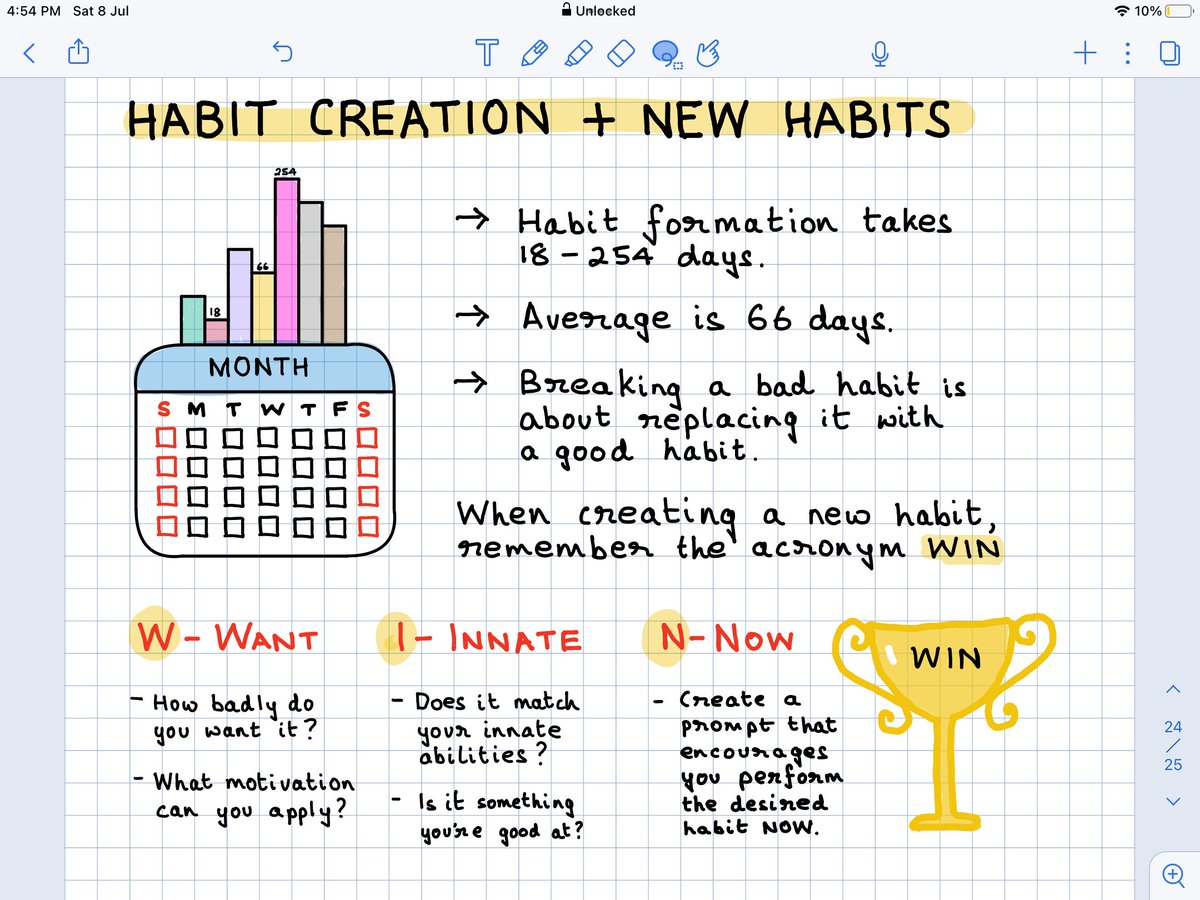 4:54 PM Sat 8 Jul
Unlocked
10%
HABIT CREATION + NEW HABITS
254
66
18
MONTH
S M T W T F S
→ Habit formation takes
18 - 254 days.
→ Average is 66 days.
→ Breaking a bad habit is
about replacing it with
a good habit.
When creating a new habit,
remember the acronym WIN
W - WANT
- How badly do
you want it?
- What motivation
can you apply?
I - INNATE
- Does it match
your innate
abilities?
- Is it something
you're good at?
N - NOW
- Create a
prompt that
encourages
you perform
the desired
habit NOW.
WIN
24
/
25